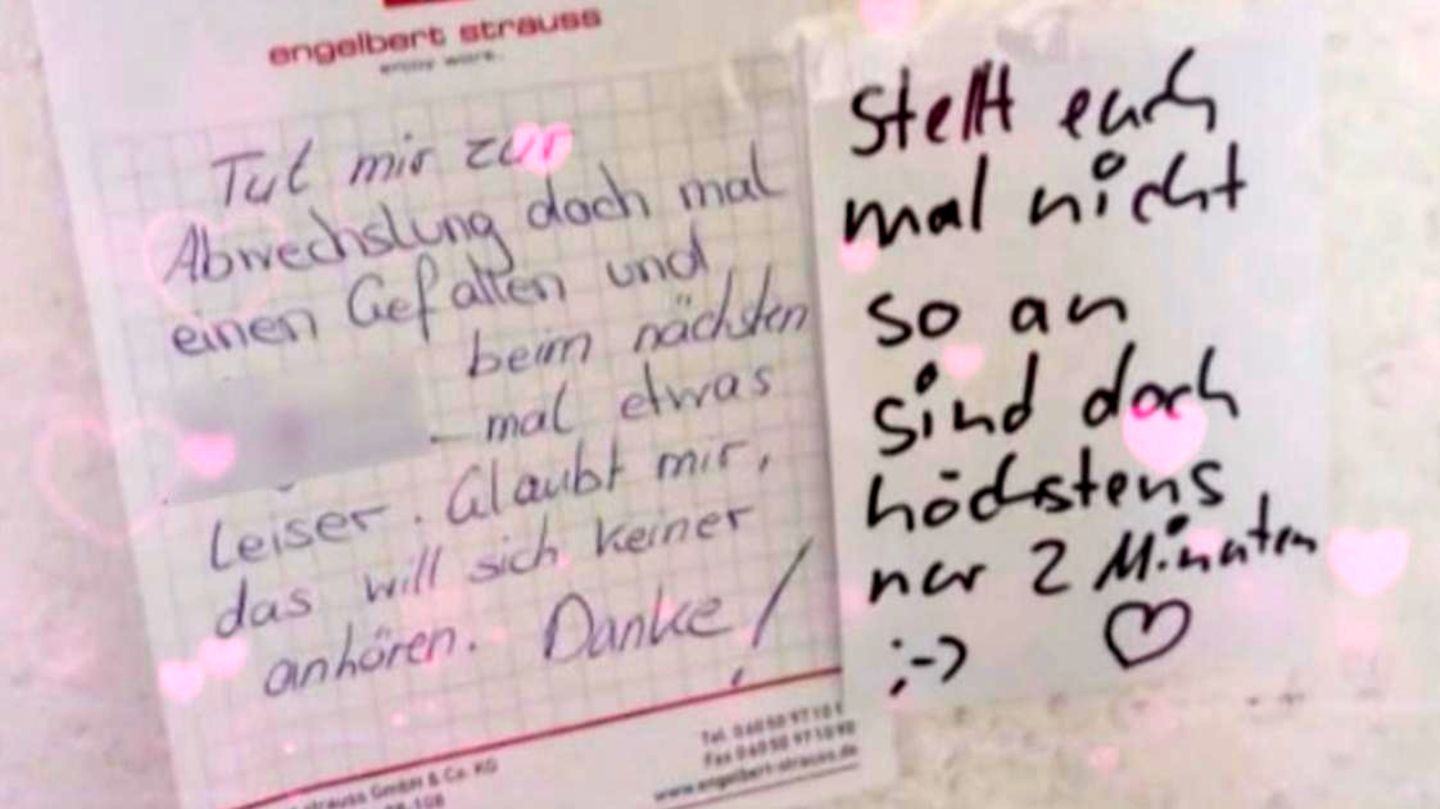 engelbert strauss
enjoy work.
Tut mir zur
Abwechslung doch mal
einen Gefallen und
beim nächsten
mal etwas
Leiser. Glaubt mir,
das will sich keiner
anhören. Danke!
strauss GmbH & Co. KG
Tel. 0 60 50 97 10
Fax 0 60 50 97 10 90
www.engelbert-strauss.de
Stellt euch
mal nicht
so an
sind doch
höchstens
nur 2 Minuten
;-) ♡